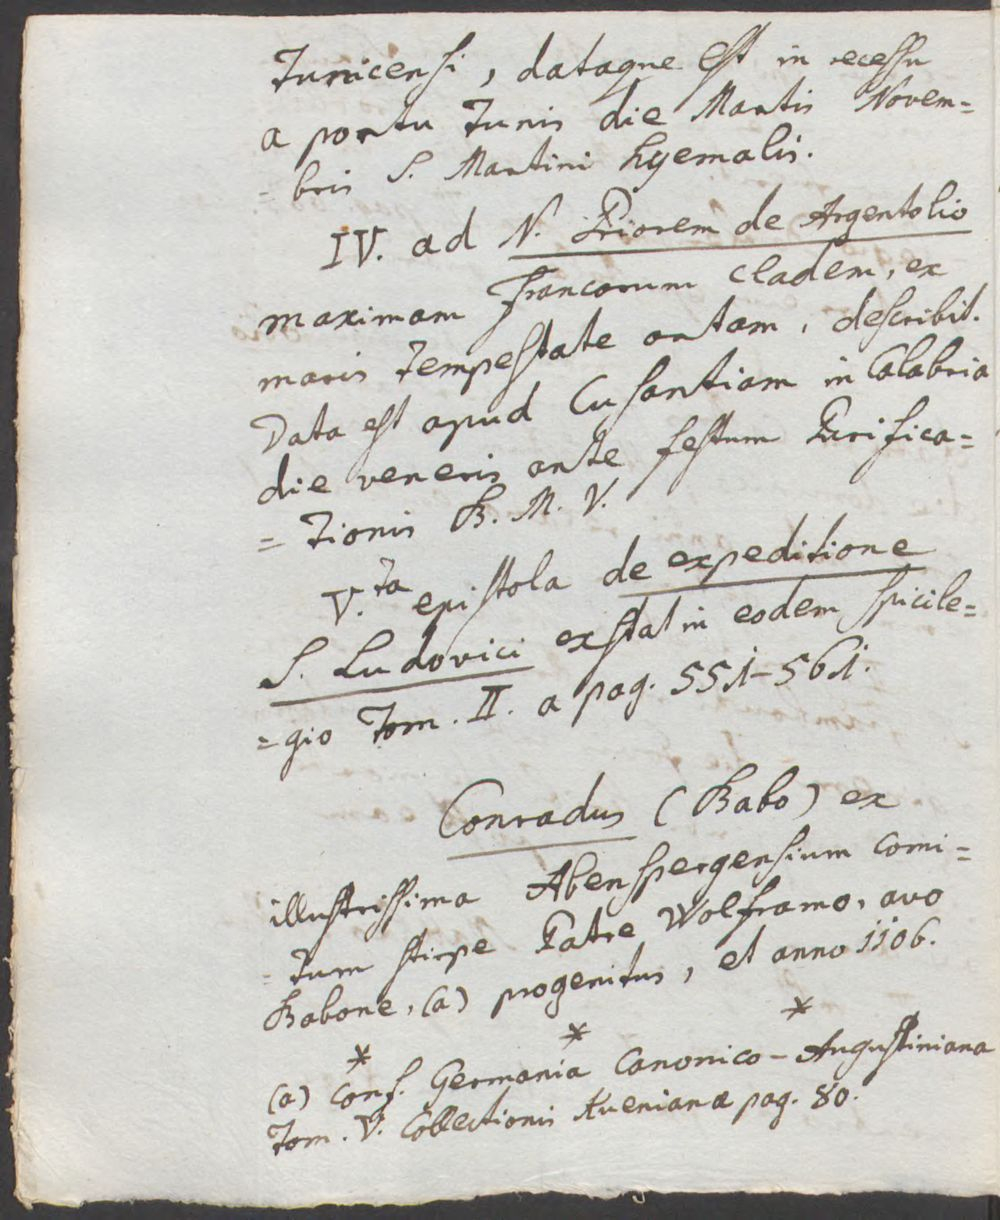 Tunicensi, dataque est in recessu
a portu Tunis die Martis Novem=
=bris S. Martini hyemalis.
IV. ad N. Priorem de Argentolio
maximam francorum cladem, ex
maris tempestate ortam, describit.
Data est apud Cusantiam in Calabria
die veneris ante festum Purifica=
=tionis B. M. V.
V.ta epistola de expeditione
S. Ludovici exstat in eodem spicile=
=gio Tom. II. a pag. 551-561.
Conradus (Babo) ex
illustrissima Abenspergensium comi=
=tum stirpe Patre Wolframo, avo
Babone, (a) progenitus, et anno 1106.
* * *
(a) Conf. Germania Canonico-Augustiniana
Tom. V. Collectionis Kueniana pag. 80.